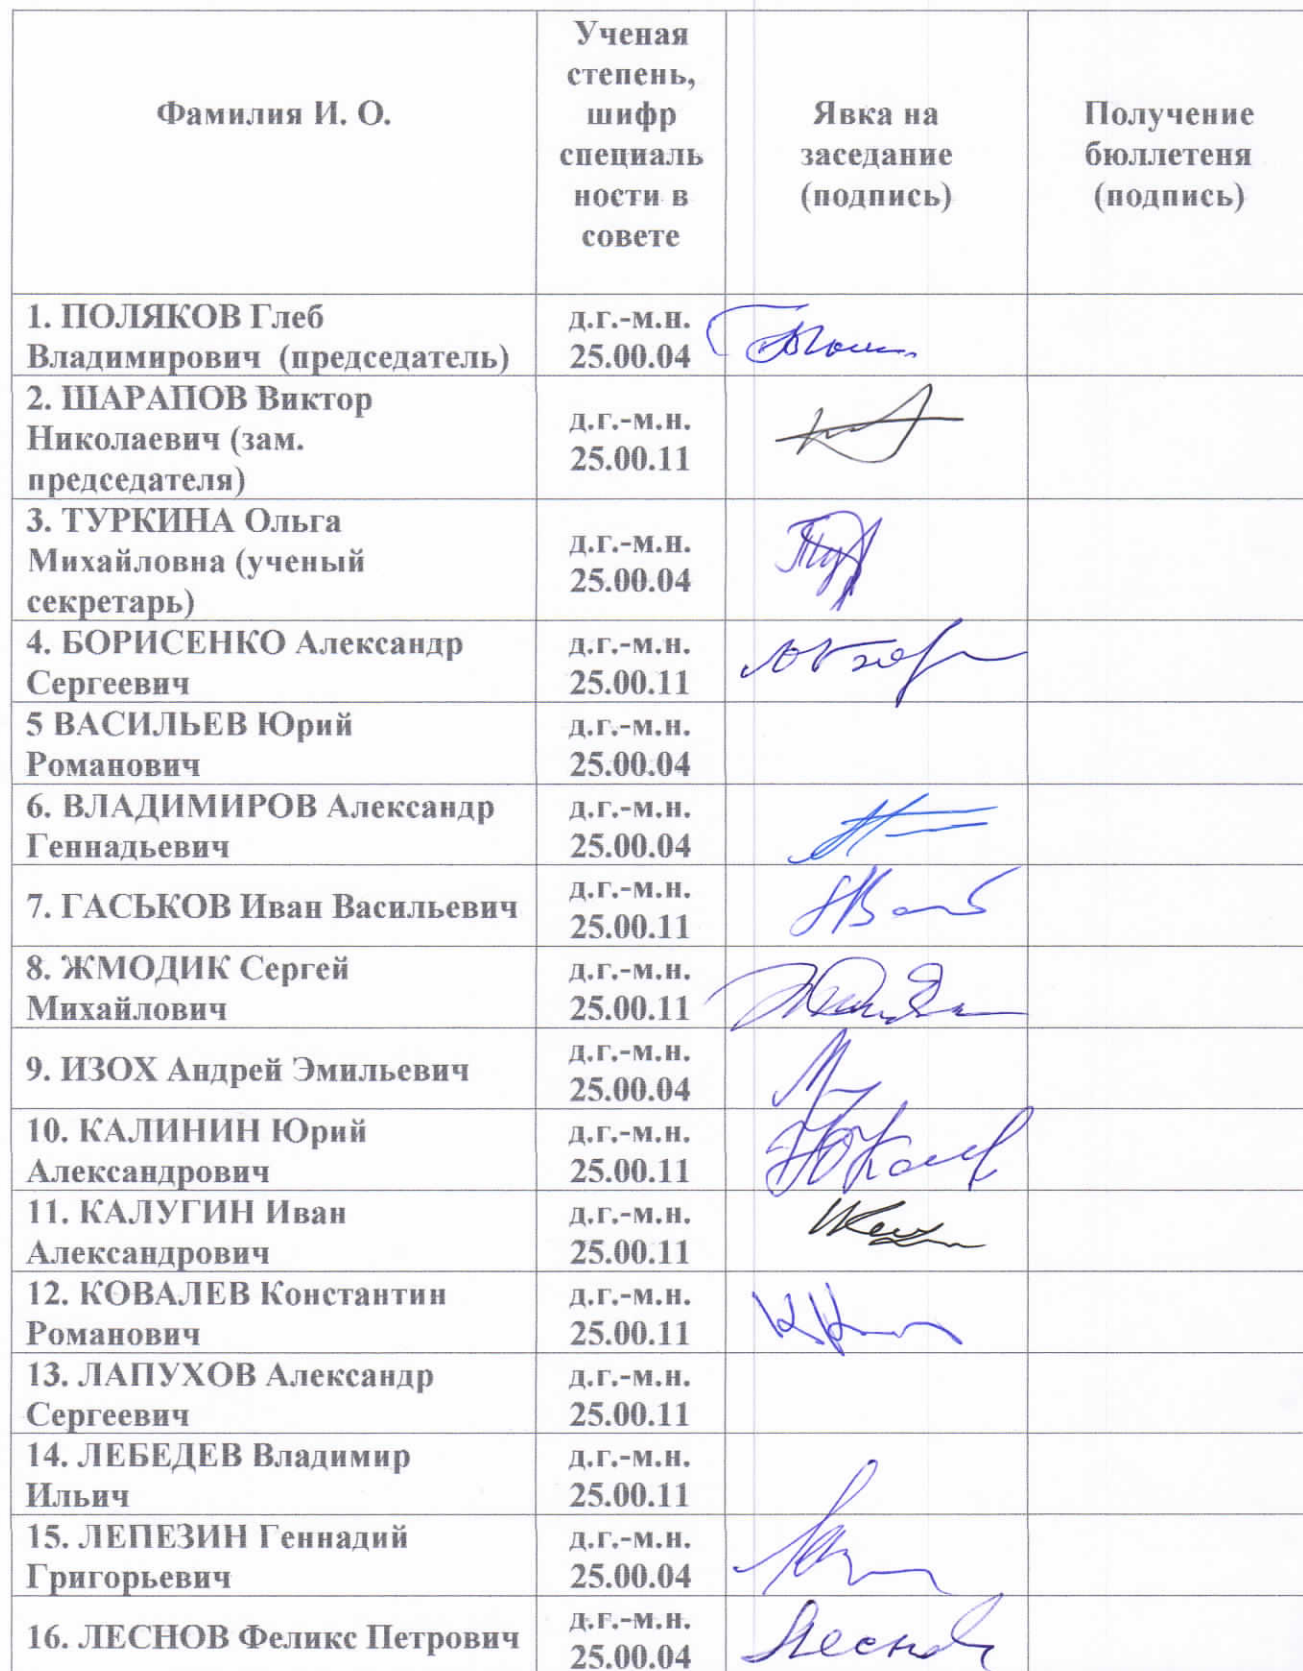 Фамилия И. О.
Ученая
степень,
шифр
специаль
ности в
совете
Явка на
заседание
(подпись)
Получение
бюллетеня
(подпись)
1. ПОЛЯКОВ Глеб
Владимирович (председатель)
д.г.-м.н.
25.00.04
2. ШАРАПОВ Виктор
Николаевич (зам.
председателя)
д.г.-м.н.
25.00.11
3. ТУРКИНА Ольга
Михайловна (ученый
секретарь)
д.г.-м.н.
25.00.04
4. БОРИСЕНКО Александр
Сергеевич
д.г.-м.н.
25.00.11
5 ВАСИЛЬЕВ Юрий
Романович
д.г.-м.н.
25.00.04
6. ВЛАДИМИРОВ Александр
Геннадьевич
д.г.-м.н.
25.00.04
7. ГАСЬКОВ Иван Васильевич
д.г.-м.н.
25.00.11
8. ЖМОДИК Сергей
Михайлович
д.г.-м.н.
25.00.11
9. ИЗОХ Андрей Эмильевич
д.г.-м.н.
25.00.04
10. КАЛИНИН Юрий
Александрович
д.г.-м.н.
25.00.11
11. КАЛУГИН Иван
Александрович
д.г.-м.н.
25.00.11
12. КОВАЛЕВ Константин
Романович
д.г.-м.н.
25.00.11
13. ЛАПУХОВ Александр
Сергеевич
д.г.-м.н.
25.00.11
14. ЛЕБЕДЕВ Владимир
Ильич
д.г.-м.н.
25.00.11
15. ЛЕПЕЗИН Геннадий
Григорьевич
д.г.-м.н.
25.00.04
16. ЛЕСНОВ Феликс Петрович
д.г.-м.н.
25.00.04